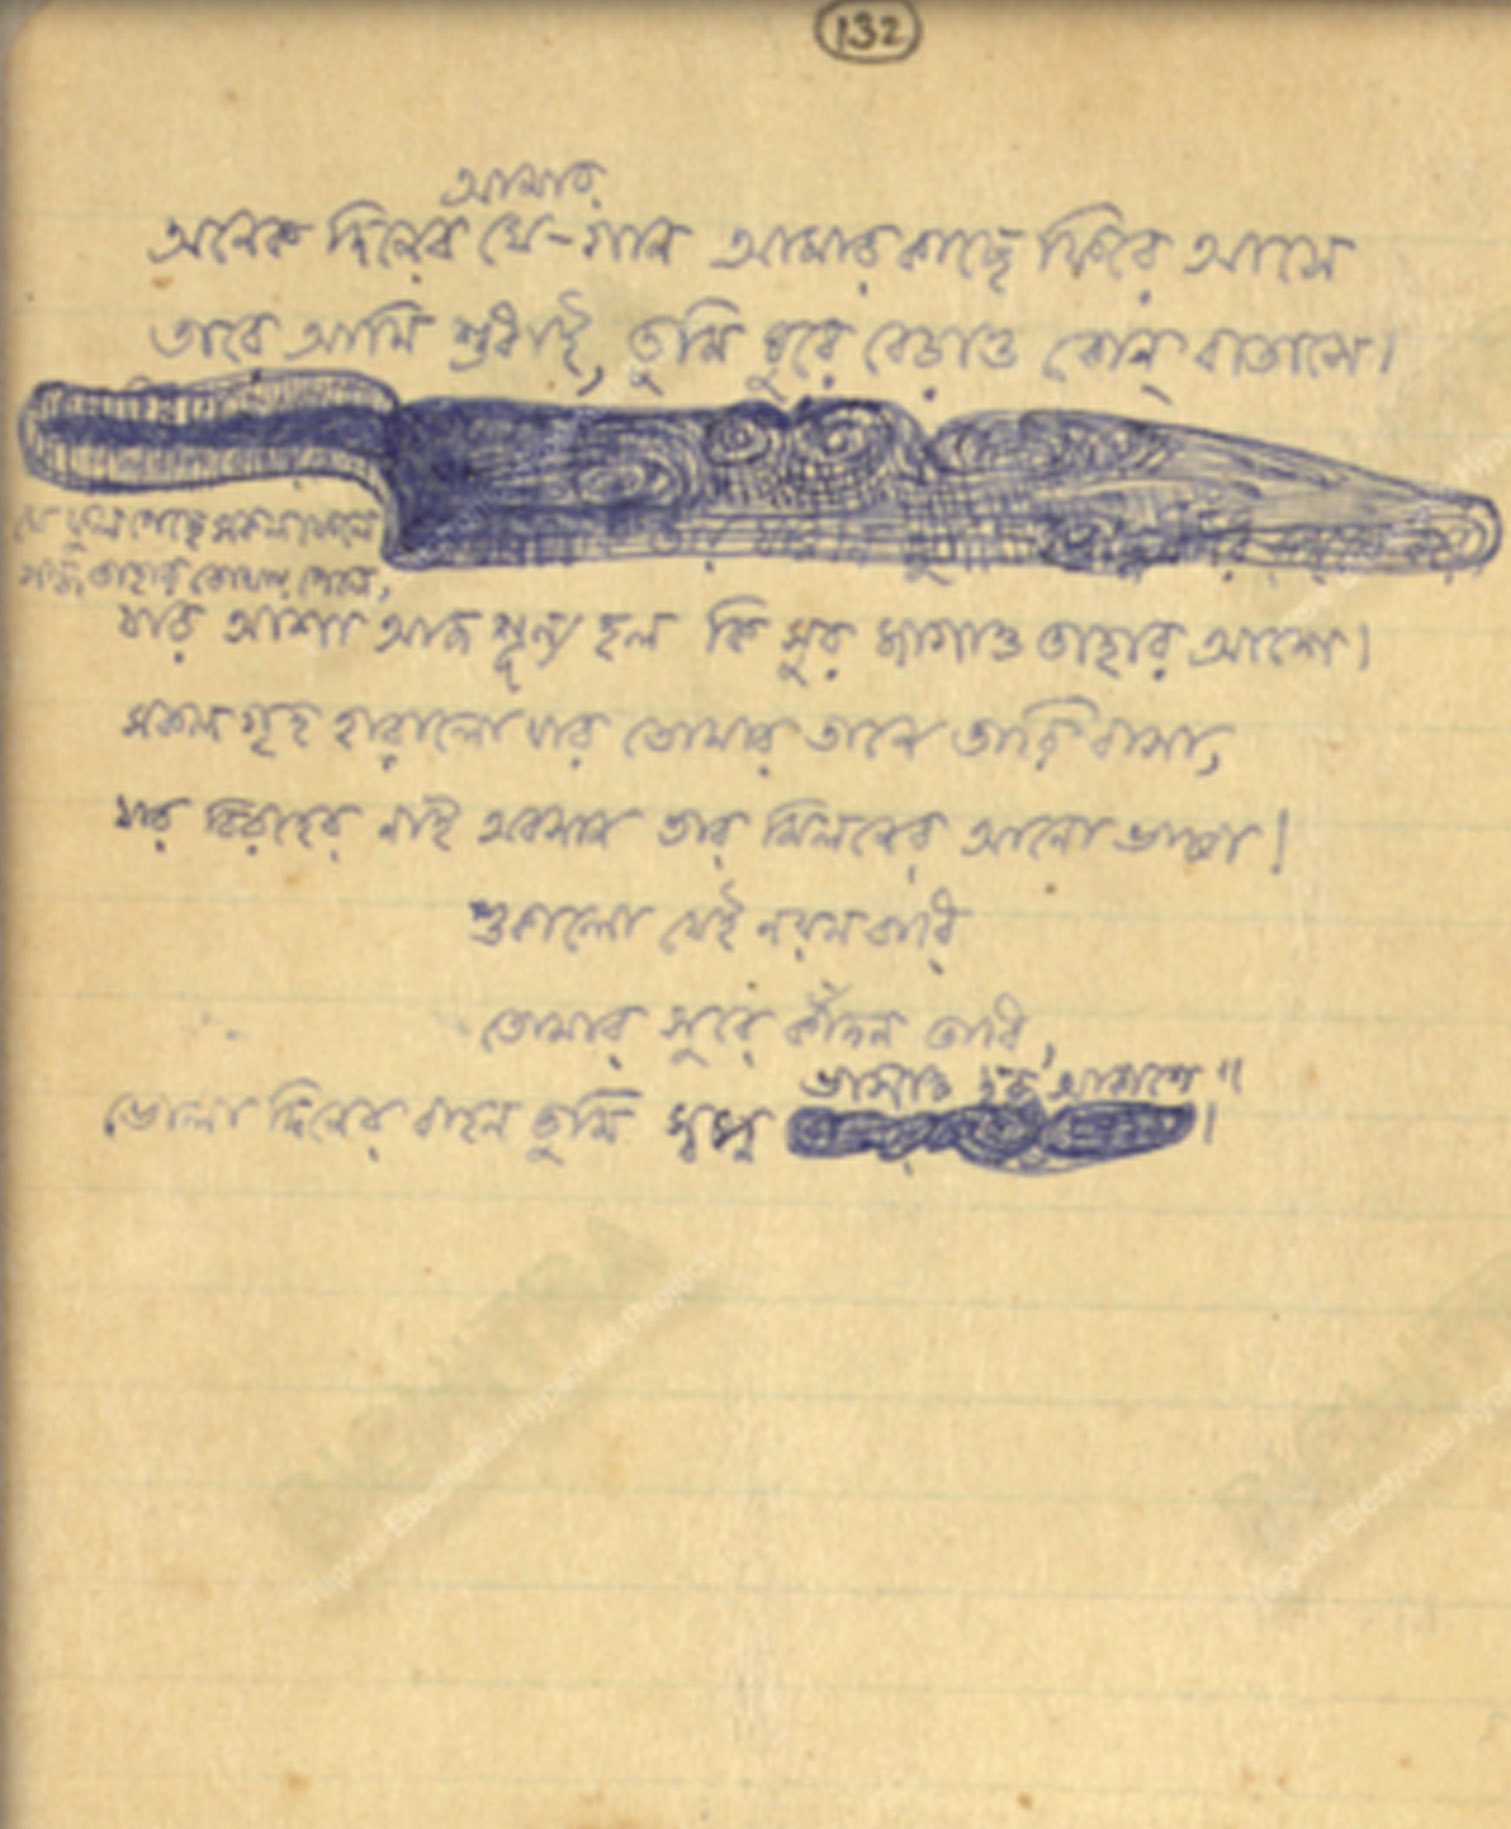 132
আমার
অনেক দিনের যে-গান আমার কাছে ফিরে আসে
তারে আমি শুধাই, তুমি ঘুরে বেড়াও কোন্ বাতাসে।
যে ফুল গেছে সকল ফেলে
গন্ধ তাহার কোথায় পেলে,
যার আশা আজ শূন্য হল কি সুর জাগাও তাহার আশে।
সকল গৃহ হারালো যার তোমার তানে তারি বাসা,
যার বিরহের নাই অবসান তার মিলনের আনো ভাষা!
শুকালো যেই নয়নবারি
তোমার সুরে কাঁদন তারি,
ভাসাও আকাশে॥
ভোলা দিনের বাহন তুমি স্বপ্ন ।